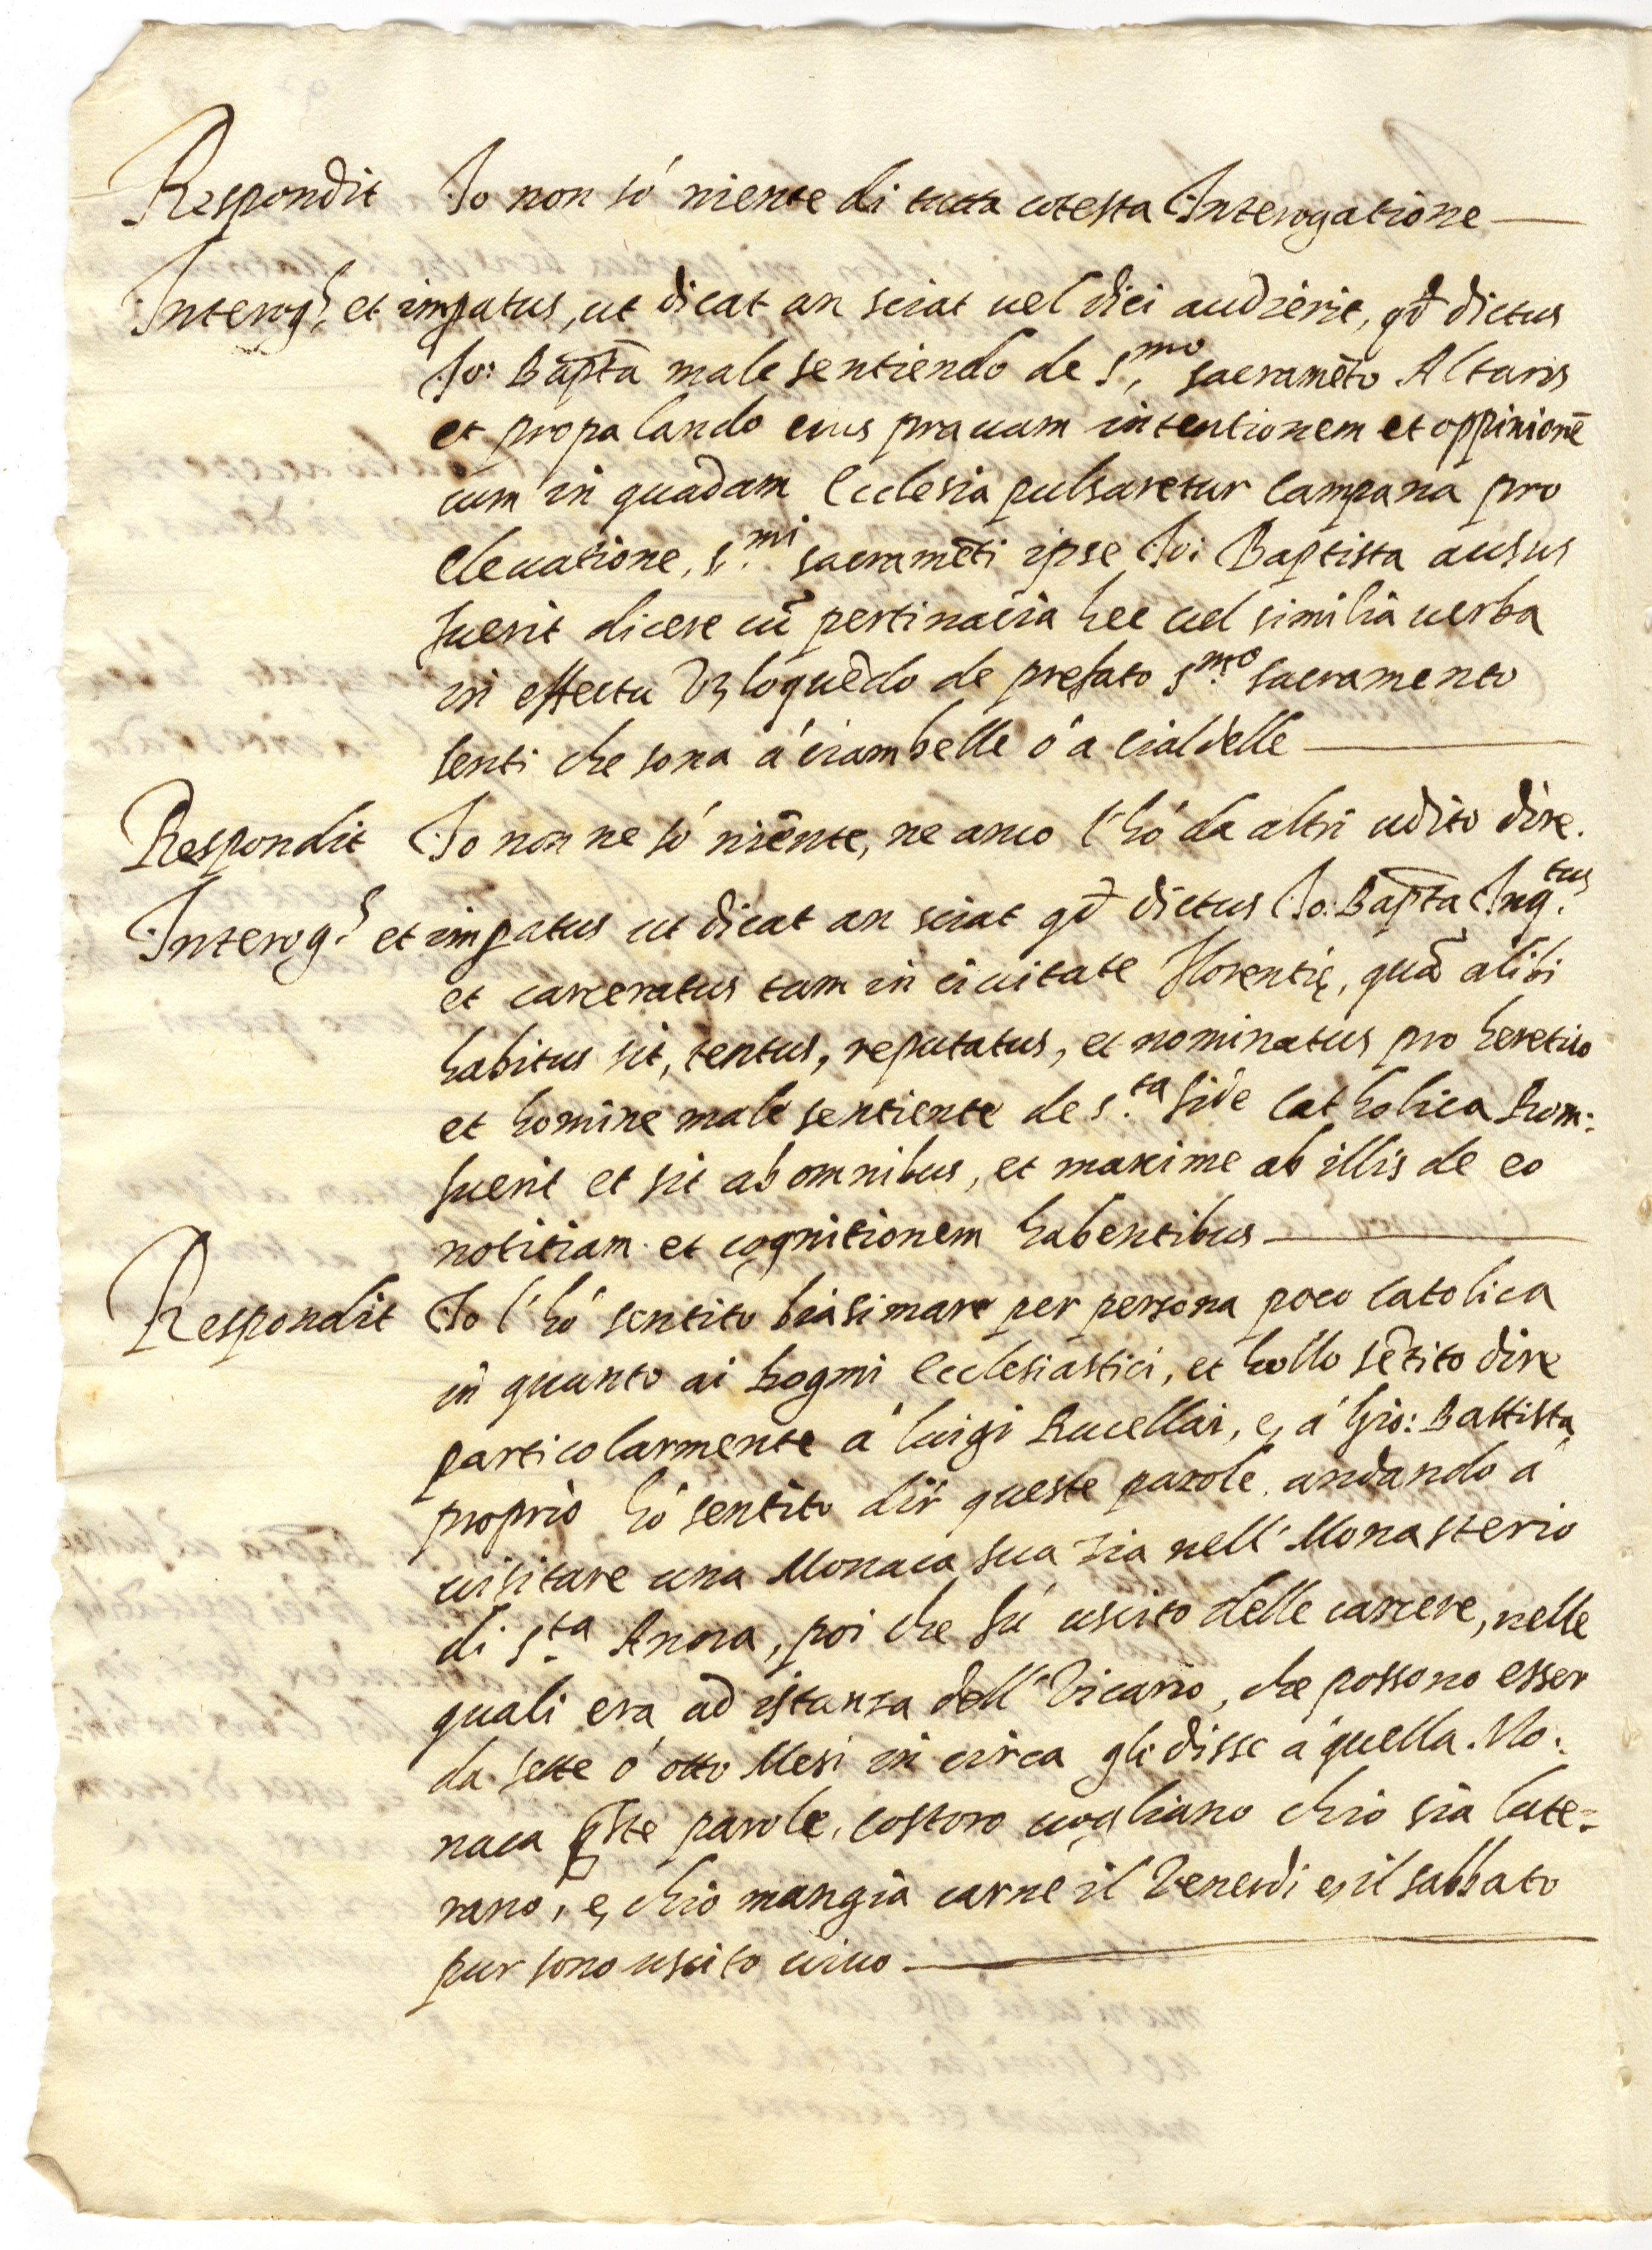 Respondit Io non só niente di tutta cotesta Interogatione
Interog.s et impatus, ut dicat an sciat uel dici audierit, qd dictus
Io: Bapta male sentiendo de s.mo sacramēto Altaris
et propalando eius prauam intentionem et oppinionē
cum in quadam Ecclesia pulsaretur campana pro
eleuatione, s.mi sacramēti ipse Io: Baptista ausus
fuerit dicere cū pertinacia hec uel similia uerba
in effectu Vz loquēdo de prefato s.mo sacramento
senti che sona á ciambelle ó a cialdelle
Respondit Io non ne só niēnte, ne anco l'hó da altri udito dire.
Interog.s et impatus ut dicat an sciat qd dictus Io: Bapta Inq.tus
et carceratus tam in ciuitate Florentię, quā alibi
habitus sit, tentus, reputatus, et nominatus pro heretico
et homine male sentiente de s.ta fide Catholica Rom:
fuerit et sit ab omnibus, et maxime ab illis de eo
notitiam et cognitionem habentibus
Respondit Io l'hó sentito biasimare per persona poco Catolica
in quanto ai hogmi Ecclesiastici, et hollo sētito dire
particolarmente á luigi Rucellai, e, á Gio: Battista
proprio hó sentito dir queste parole. andando á
uisitare una Monaca sua zia nell' Monasterio
di S.ta Anna, poi che fú uscito delle carcere, nelle
quali era ad istanza dell' Vicario, che possono esser
da sette ó otto Mesi in circa gli disse á quella Mo:
naca qste parole, costoro uogliano chio sia lute=
rano, e, chio mangia carne il Venerdi e, il sabbato
pur sono uscito uiuo